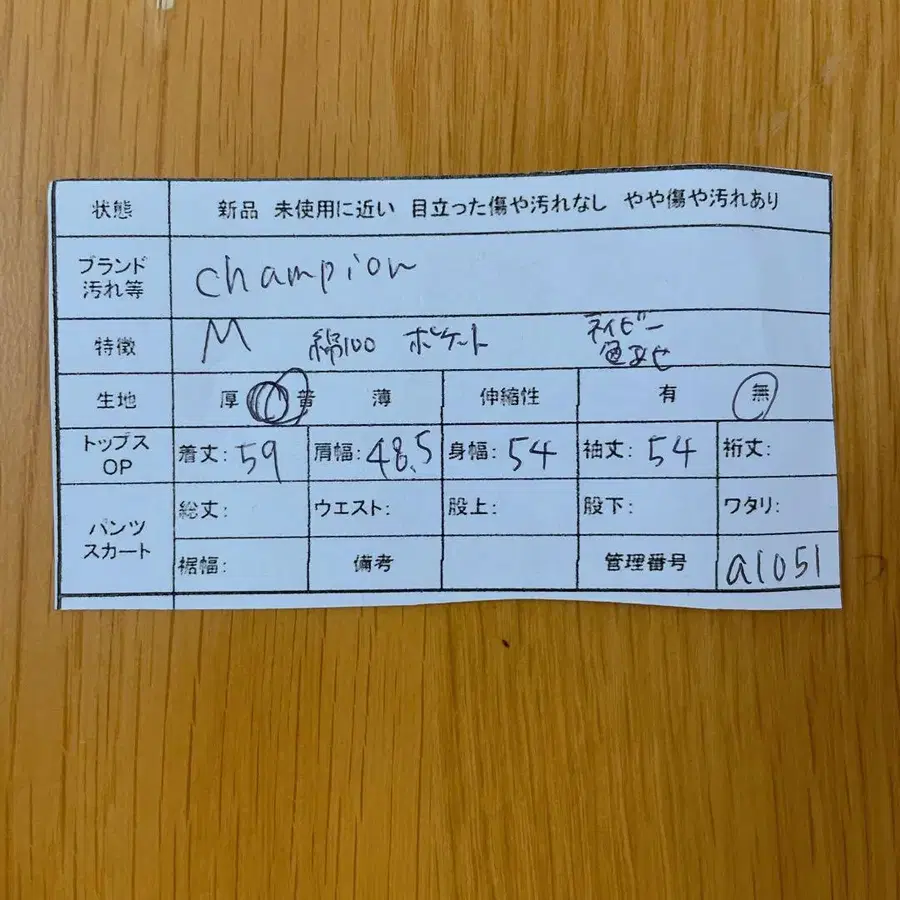 状態 新品 未使用に近い 目立った傷や汚れなし やや傷や汚れあり
ブランド
汚れ等 champion
特徴 M 綿100 ポケット ネイビー
色あせ
生地 厚 普 薄 伸縮性 有 無
トップス
OP 着丈: 59 肩幅: 48.5 身幅: 54 袖丈: 54 裄丈:
パンツ
スカート 総丈: ウエスト: 股上: 股下: ワタリ:
裾幅: 備考 管理番号 a1051